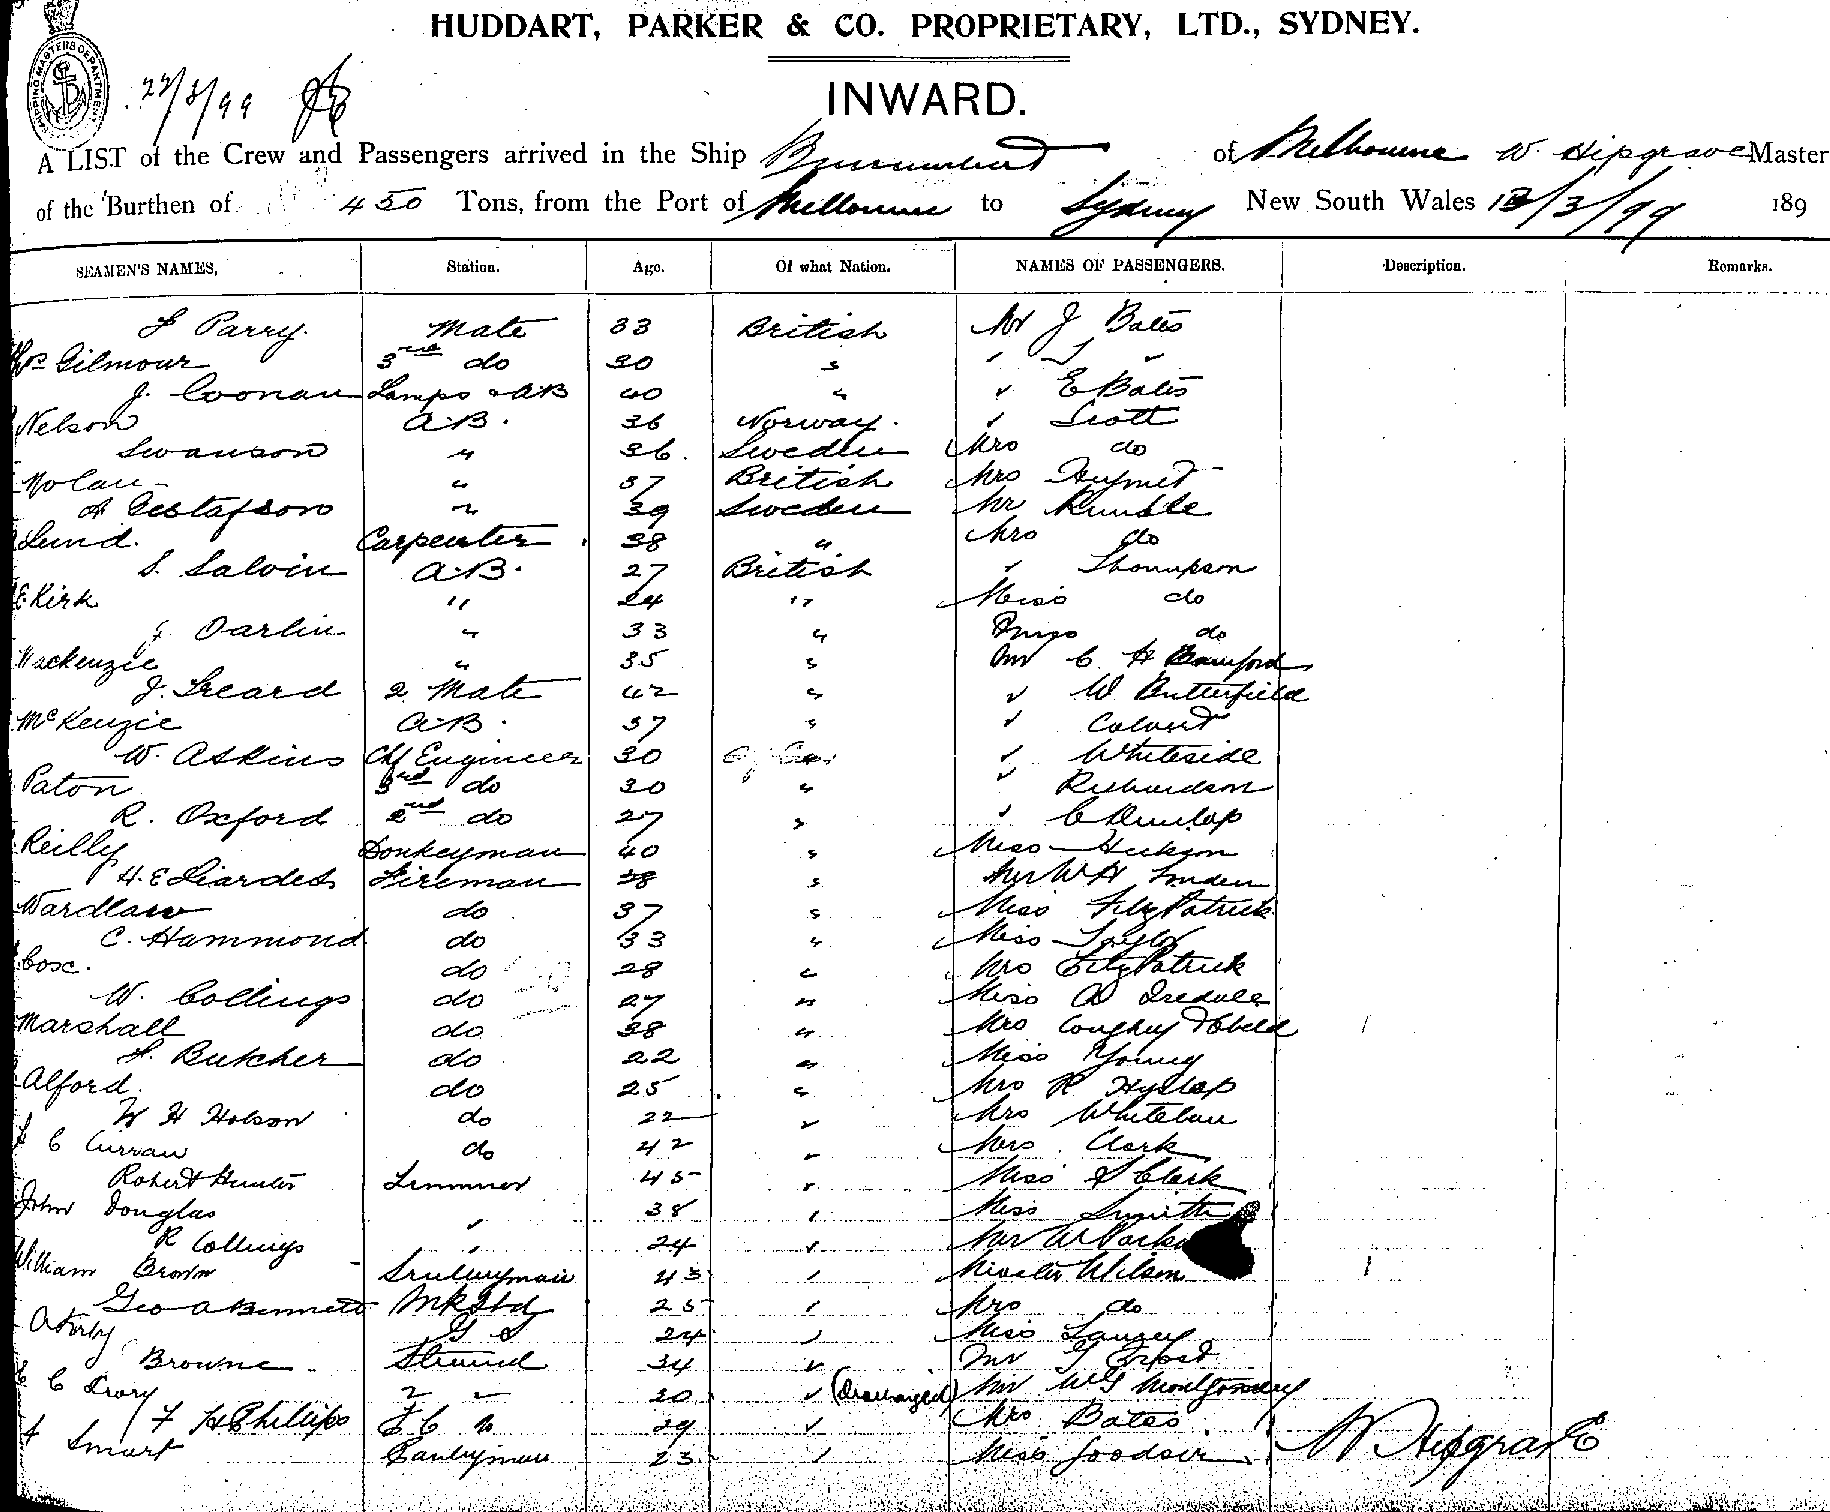 HUDDART, PARKER & CO. PROPRIETARY, LTD., SYDNEY.
SHIPPING MASTERS DEPARTMENT
22/3/99
INWARD.
A LIST of the Crew and Passengers arrived in the Ship Burrumbeet of Melbourne W. Hipgrave Master
of the Burthen of 450 Tons, from the Port of Melbourne to Sydney New South Wales 13/3/99 189
SEAMEN'S NAMES, Station. Age. Of what Nation. NAMES OF PASSENGERS. Description. Remarks.
J Parry. Mate 33 British Mr J Bates
Gilmour 3rd do 30 " " J "
J. Coonan Lamps & AB 40 " " E Bates
Nelson A.B. 36 Norway. " Scott
Swanson " 26. Sweden Mrs do
Nolan " 37 British Mrs
A Gustafson " 39 Sweden Mr Rumble
Lund. Carpenter 38 " Mrs do
S. Salvin A.B. 27 British " Thompson
E Kirk " 24 " Miss do
J. Darlin " 33 " do
Mackenzie " 35 " Mr C. H Bamford
J. Sceard 2 Mate 42 " " W Butterfield
McKenzie A.B. 37 " " Calvert
W. Askins Chf Engineer 30 " Whiteside
Paton 3rd do 30 " " Richardson
R. Oxford 2nd do 27 " " C Dunlop
Reilly Donkeyman 40 " Miss
H. E Liardet Fireman 38 " W H
Wardlaw do 37 " Miss FitzPatrick
C. Hammond do 33 " Miss Taylor
Cosc. do 28 " Mrs FitzPatrick
W. Collings do 27 " Miss A Iredale
Marshall do 38 " Mrs Coughey & Child 1
H. Butcher do 22 " Miss Young
Alford. do 25 " Mrs R Hyslop
W H Hobson do 22 " Mrs Whitelaw
C Curran do 42 " Mrs. Clark
Robert Hunter Trimmer 45 " Miss S Clark
John Douglas " 38 " Miss Smith
R Collings " 24 " Mr W
William Brown 43 " Wilson 1
Geo A Bennett 25 " Mrs do
A Kirby 24 " Miss
Browne Steward 34 " Mr
E C Drory " " 20 " (Discharged) Mr Montgomery
F H Phillips F C " 29 " Mrs Bates
Smart Pantryman 23 " Miss Goodsir W Hipgrave